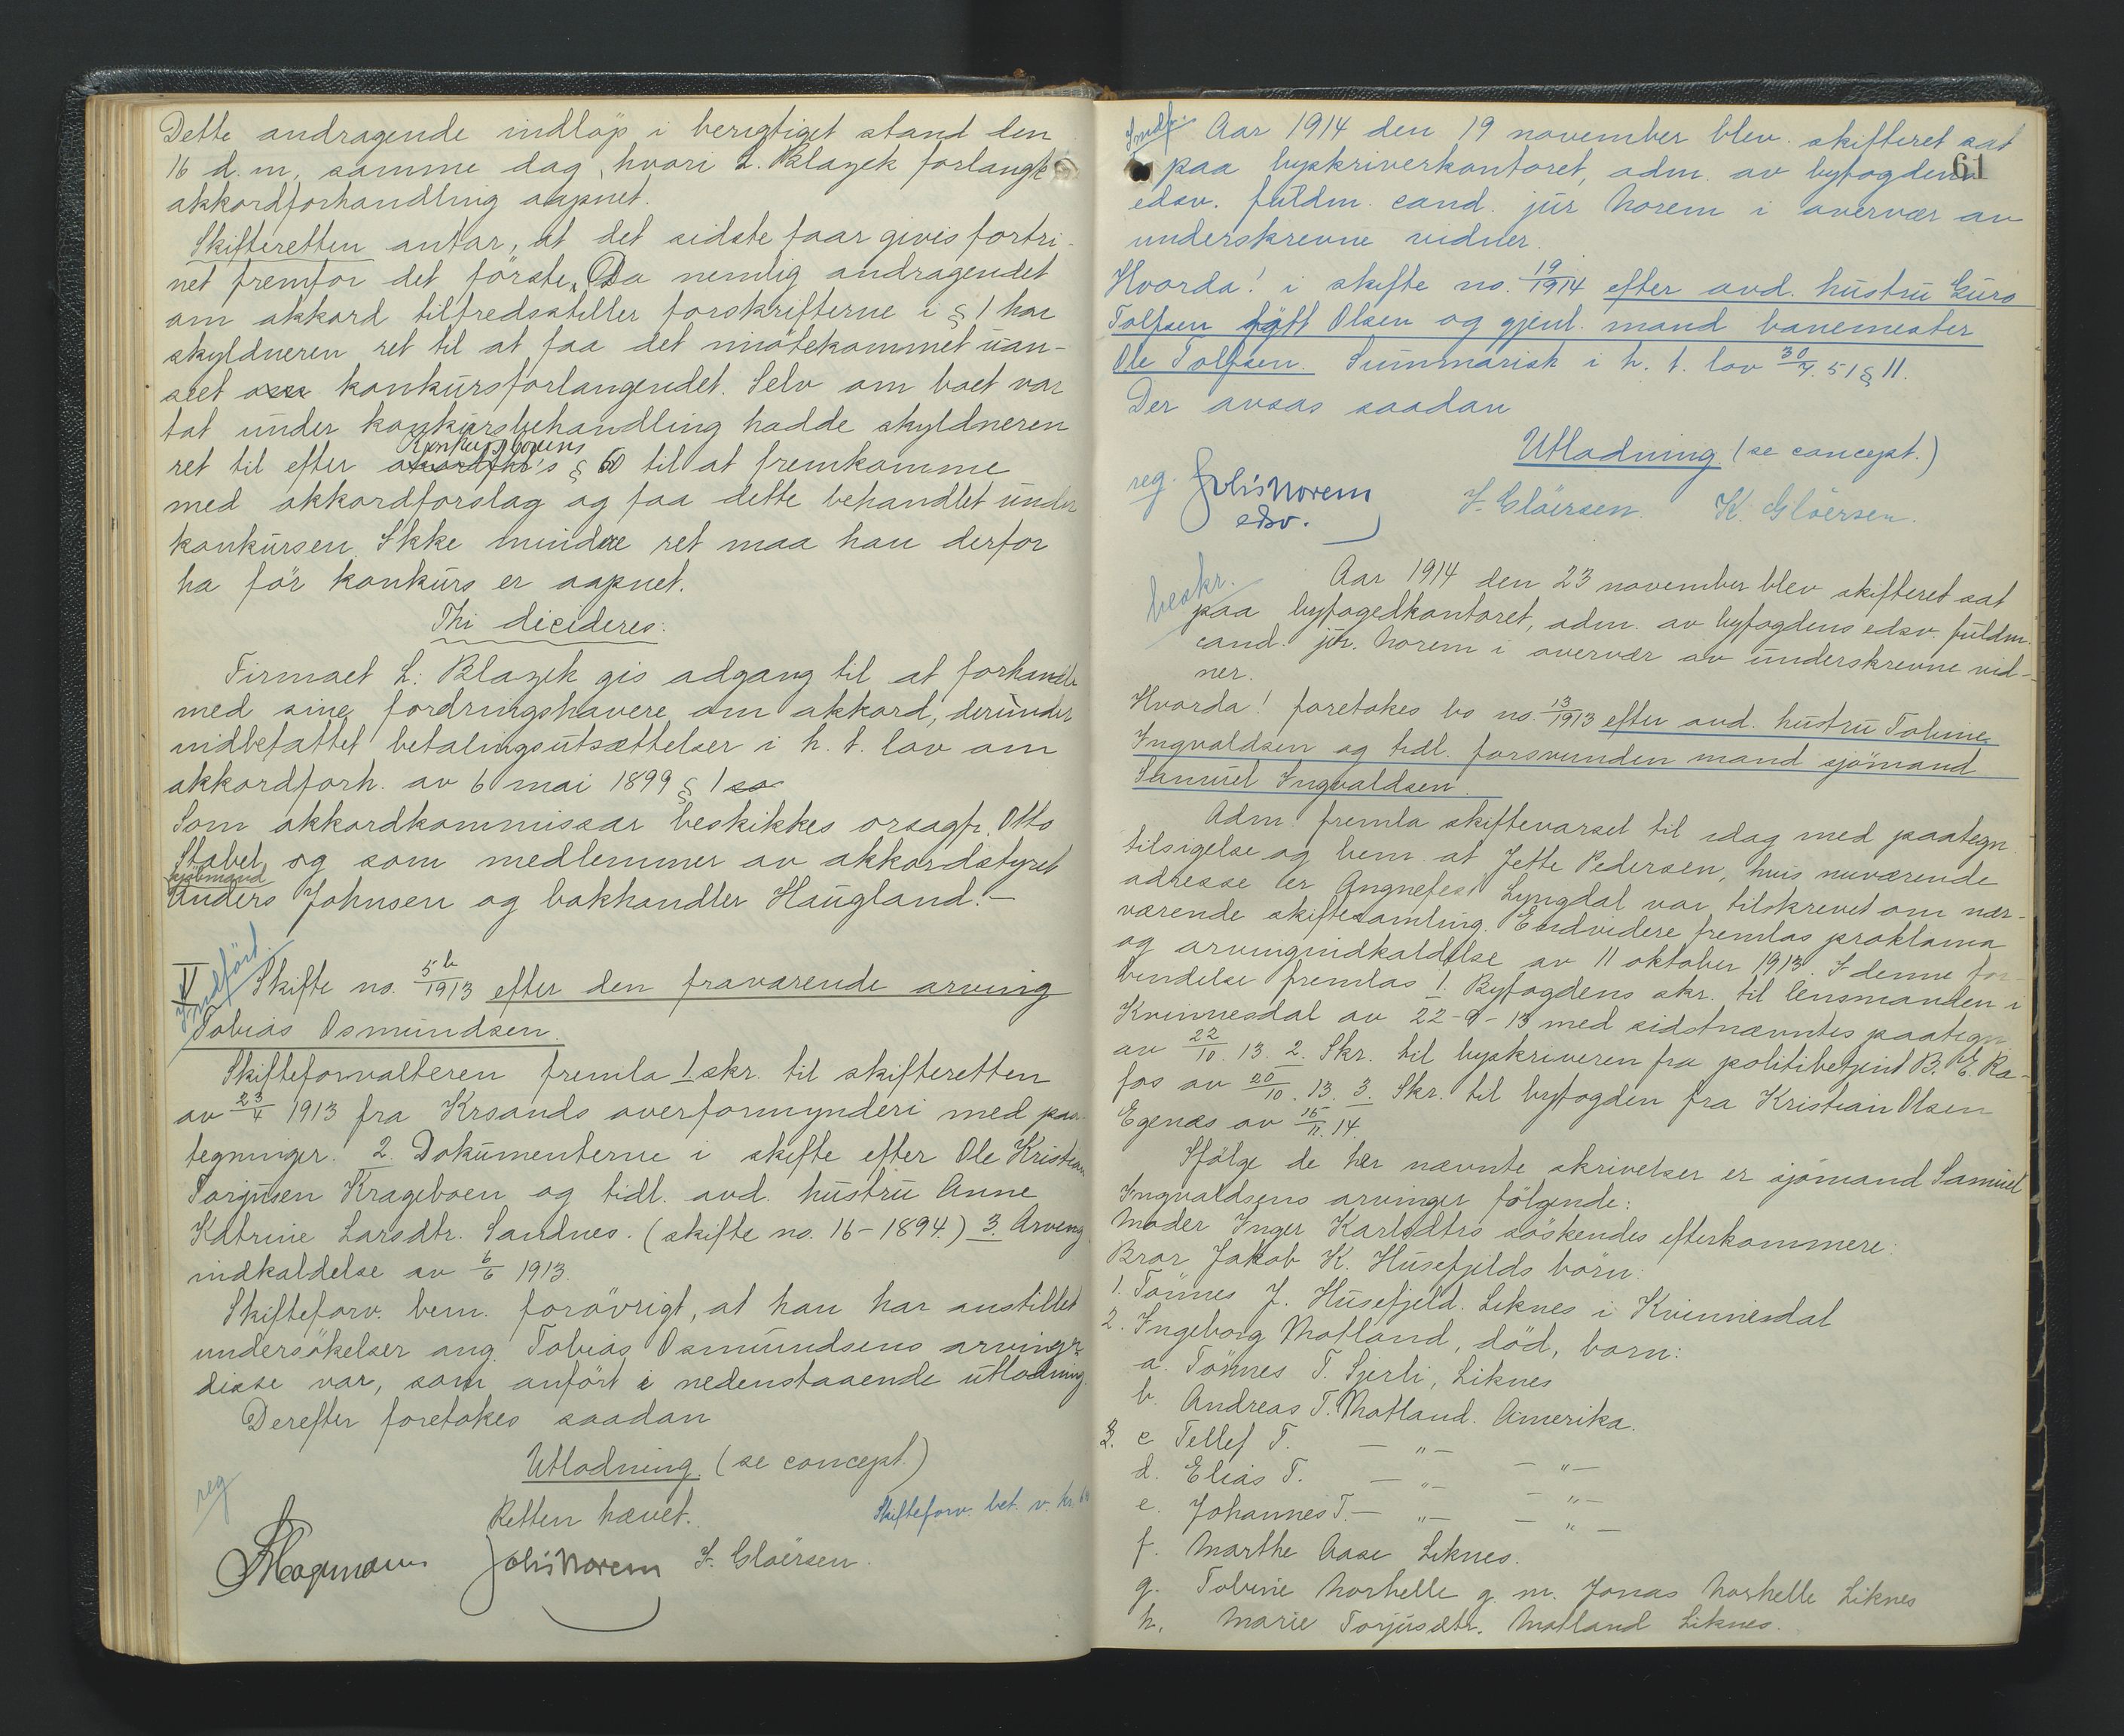 Dette andragende indløp i berigtiget stand den
16 d. m., samme dag, hvori L. Blazek forlangte
akkordforhandling aapnet.
Skifteretten antar, at det sidste faar givis fortri-
net fremfor det förste. Da nemlig andragendet
om akkord tilfredsstiller forskrifterne i § 1 har
skyldneren ret til at faa det imötekommet uan-
seet konkursforlangendet. Selv om boet var
tat under konkursbehandling hadde skyldneren
Konkurslovens
ret til efter § 60 til at fremkomme
med akkordforslag og faa dette behandlet under
konkursen. Ikke mindre ret maa han derfor
ha för konkurs er aapnet.
Thi decideres:
Firmaet L. Blazek gis adgang til at forhandle
med sine fordringshavere om akkord, derunder
indbefattet betalingsutsættelser i h. t. lov om
akkordforh. av 6 mai 1899 § 1
Som akkordkommissær beskikkes orsagf. Otto
Stabel og som medlemmer av akkordstyret
kjöbmand
Anders Johnsen og bokhandler Haugland.-
Indfört.
V Skifte no. 5b/1913 efter den fraværende arving
Tobias Osmundsen.
Skifteforvalteren fremla 1. skr. til skifteretten
av 23/4 1913 fra Krsands overformynderi med paa-
tegninger. 2. Dokumenterne i skifte efter Ole Kristian
Torjusen Krageboen og tidl. avd. hustru Anne
Katrine Larsdtr. Sandnes. (skifte no. 16-1894) 3. Arving
indkaldelse av 6/6 1913.
Skifteforv. bem. forövrigt, at han har anstillet
undersökelser ang. Tobias Osmundsens arvinger
disse var, som anfört i nedenstaaende utlodning.
Derefter foretokes saadan
Utlodning. (se concept.)
reg
Retten hævet.
Skifteforv. bet. v. kr.
Hagemann Johs Norem F. Glöersen.
61
Indf. Aar 1914 den 19 november blev skifteret sat
paa byskriverkontoret, adm. av byfogdens
edsv. fuldm. cand. jur Norem i overvær av
underskrevne vidner.
Hvorda! i skifte no. 19/1914 efter avd. hustru Guro
Tolfsen född Olsen og gjenl. mand banemester
Ole Tolfsen. Summarisk i h. t. lov 30/7. 51 § 11.
Der avsas saadan
Utlodning (se concept.)
reg. Johs Norem F. Glöersen. K. Glöersen.
edsv.
beskr.
Aar 1914 den 23 november blev skifteret sat
paa byfogedkontoret, adm. av byfogdens edsv. fuldm.
cand. jur. Norem i overvær av underskrevne vid-
ner.
Hvorda! foretokes bo no. 13/1913 efter avd. hustru Toline
Ingvaldsen og tidl. forsvunden mand sjömand
Samuel Ingvaldsen.
Adm. fremla skiftevarsel til idag med paategn.
tilsigelse og bem. at Jette Pedersen, hvis nuværende
adresse er Angnefest Lyngdal var tilskrevet om nær-
værende skiftesamling. Endvidere fremlas proklama
og arvingindkaldelse av 11 oktober 1913. I denne for-
bindelse fremlas 1. Byfogdens skr. til lensmanden i
Kvinnesdal av 22-9-13 med sidstnævntes paategn.
av 22/10. 13. 2. Skr. til byskriveren fra politibetjent B. E. Ra-
fos av 20/10. 13. 3. Skr. til byfogden fra Kristian Olsen
Egenæs av 15/11. 14.
Ifölge de her nævnte skrivelser er sjömand Samuel
Ingvaldsens arvinger fölgende:
Moder Inger Karlsdtrs söskendes efterkommere:
Bror Jakob K. Husefjelds börn:
1. Tönnes J. Husefjeld. Liknes i Kvinnesdal
2. Ingeborg Motland, död, barn:
a. Tönnes T. Sjerli, Liknes
b. Andreas T. Motland. Amerika.
3. c Tellef T. — „ — — „ —
d. Elias T. — „ — — „ —
e. Johannes T. — „ — — „ —
f. Marthe Aase Liknes.
g. Tobine Norhelle g. m. Jonas Norhelle Liknes
h. Marie Torjusdtr. Motland Liknes.